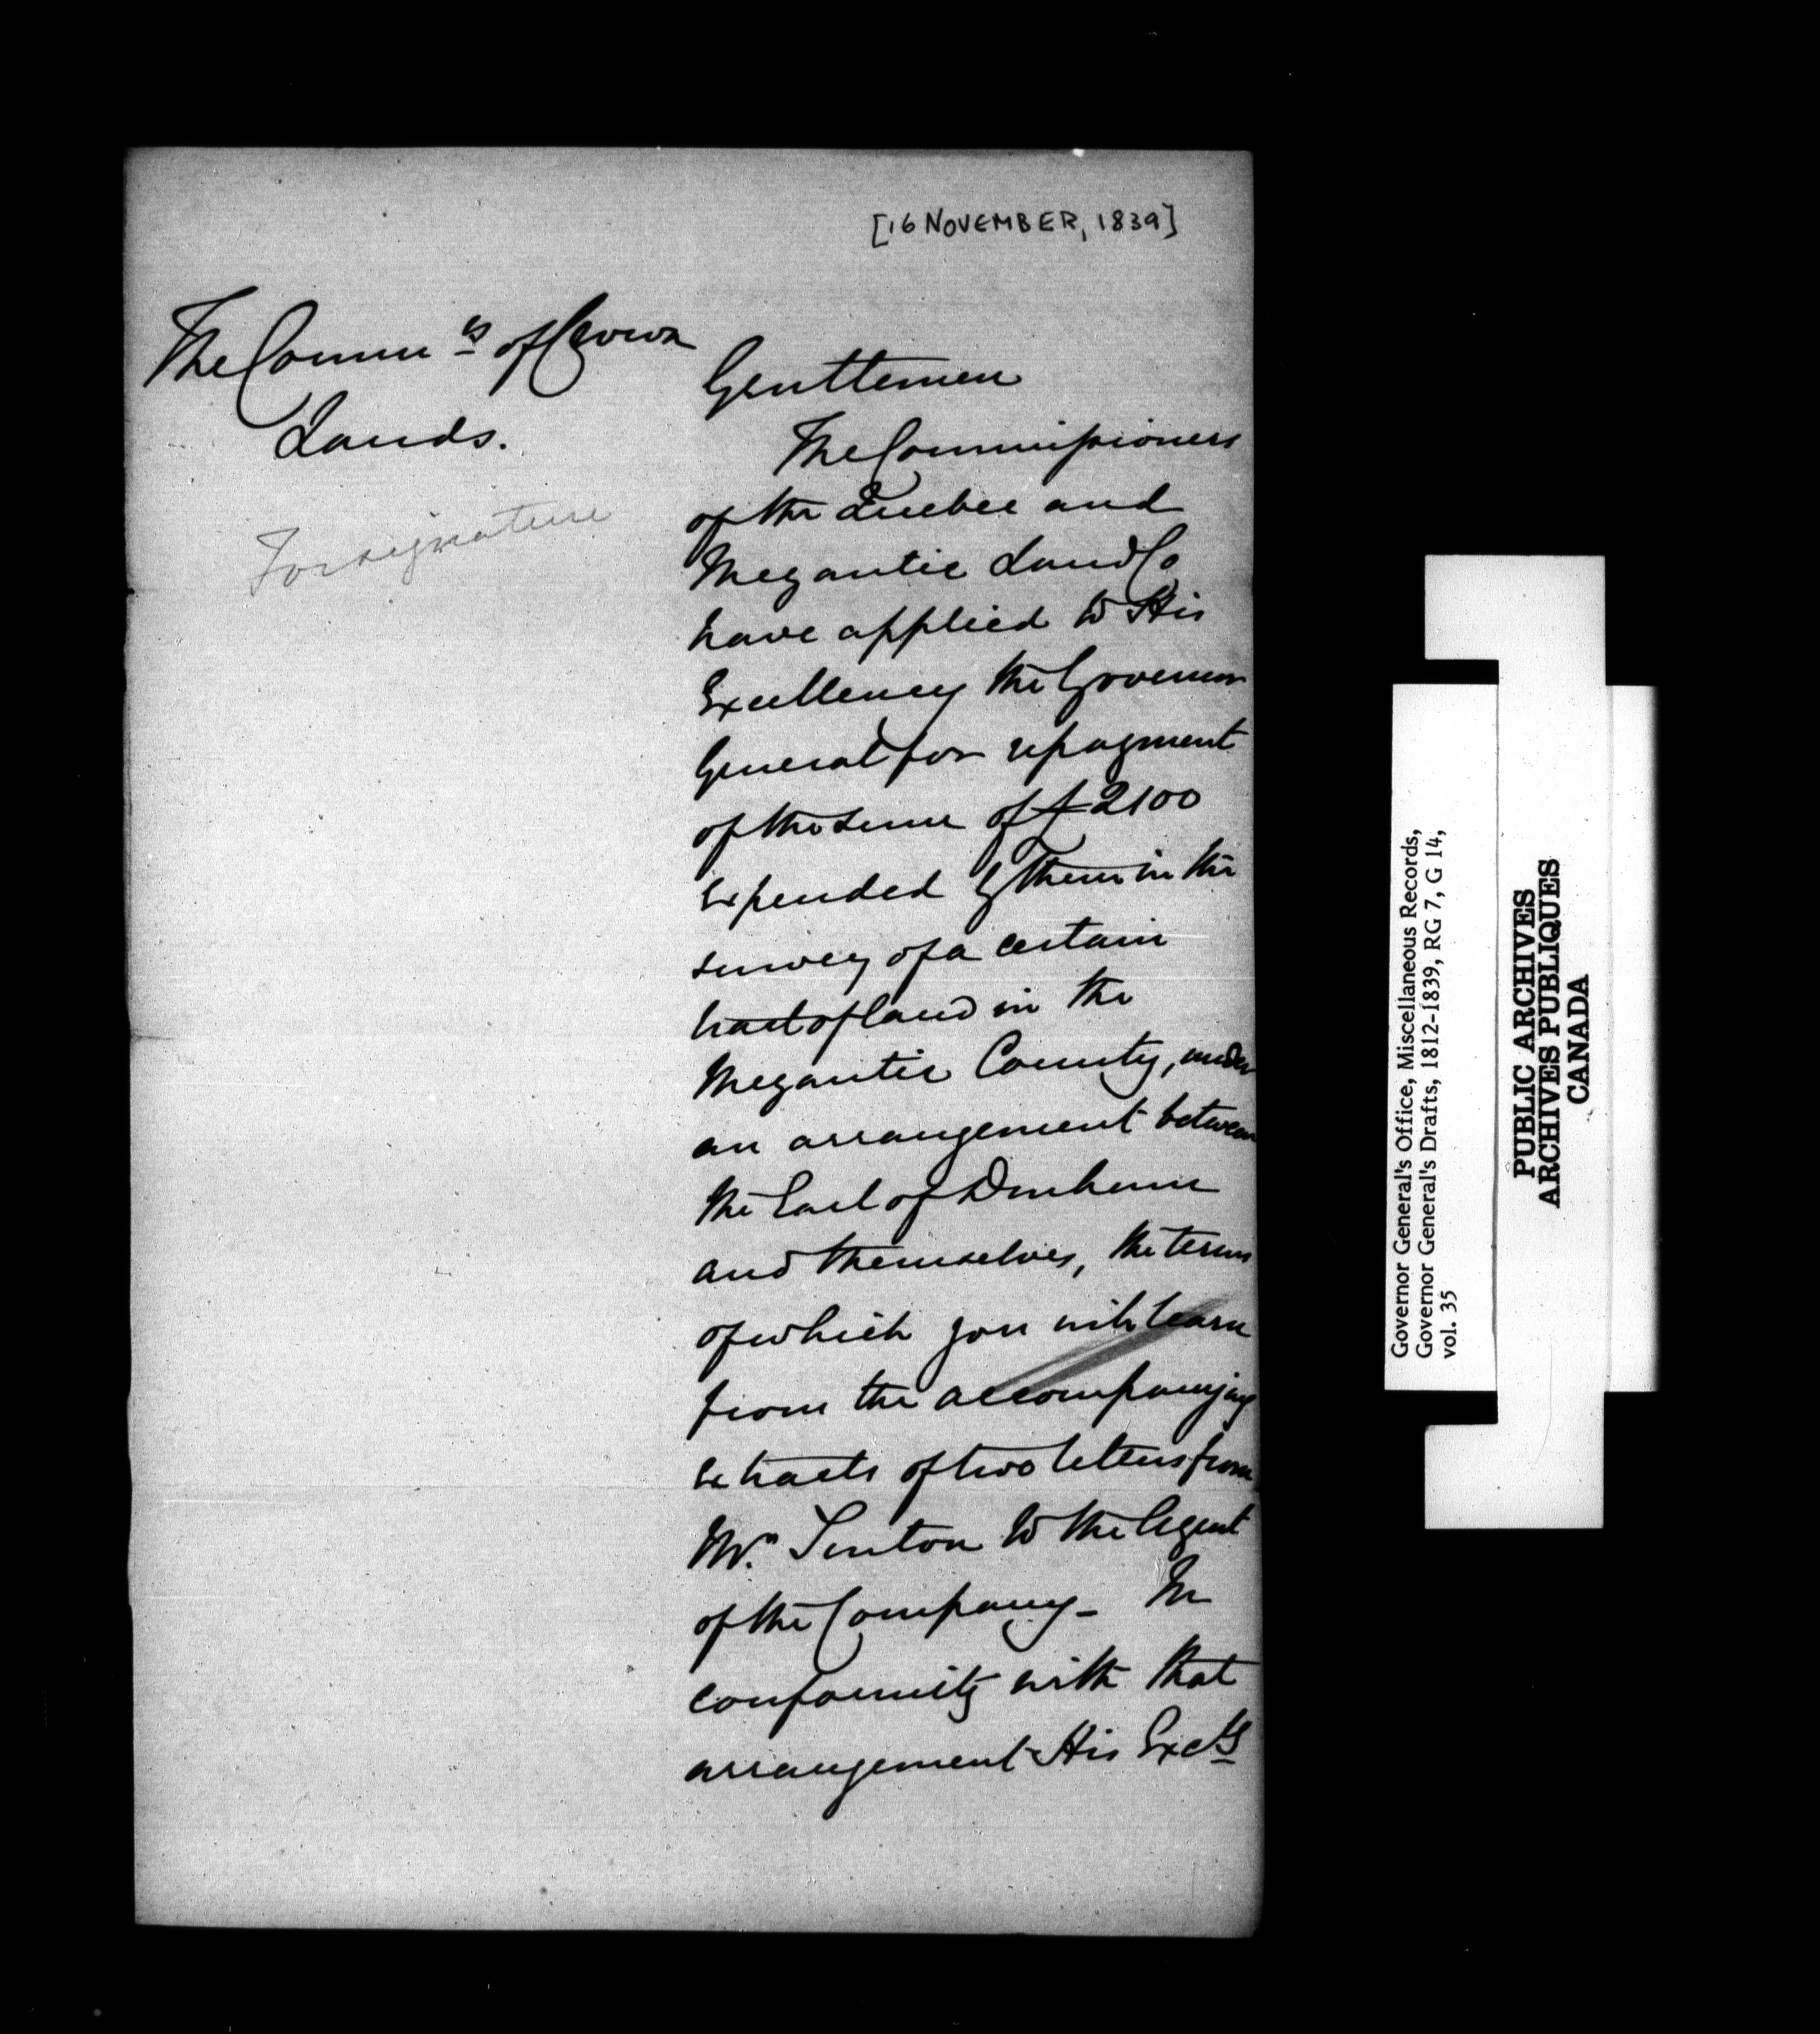 [16 NOVEMBER, 1839]
The Comm.rs of Crown
Lands.
For signature
Gentlemen
The Commissioners
of the Quebec and
Megantic Land Co
have applied to His
Excellency the Governor
General for repayment
of the sum of £2100
expended by them in the
survey of a certain
tract of land in the
Megantic County, under
an arrangement between
the Earl of Durham
and themselves, the terms
of which you will learn
from the accompanying
extracts of two letters from
Mr. to the Agent
of the Company - In
conformity with that
arrangement His Excy
Governor General's Office, Miscellaneous Records,
Governor General's Drafts, 1812-1839, RG 7, G 14,
vol. 35
PUBLIC ARCHIVES
ARCHIVES PUBLIQUES
CANADA